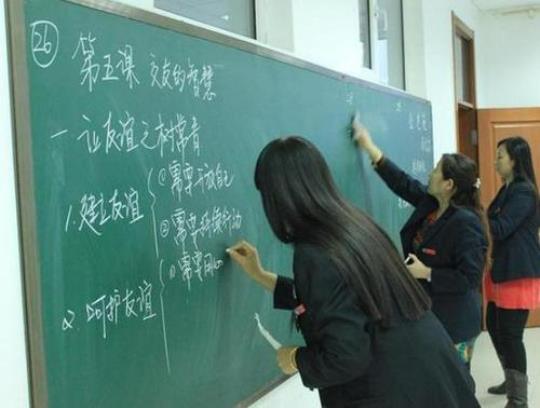 26
第五课 交友的智慧
一 让友谊之树常青
1. 建立友谊
① 需要开放自己
② 需要持续行动
2 呵护友谊
① 需要用心